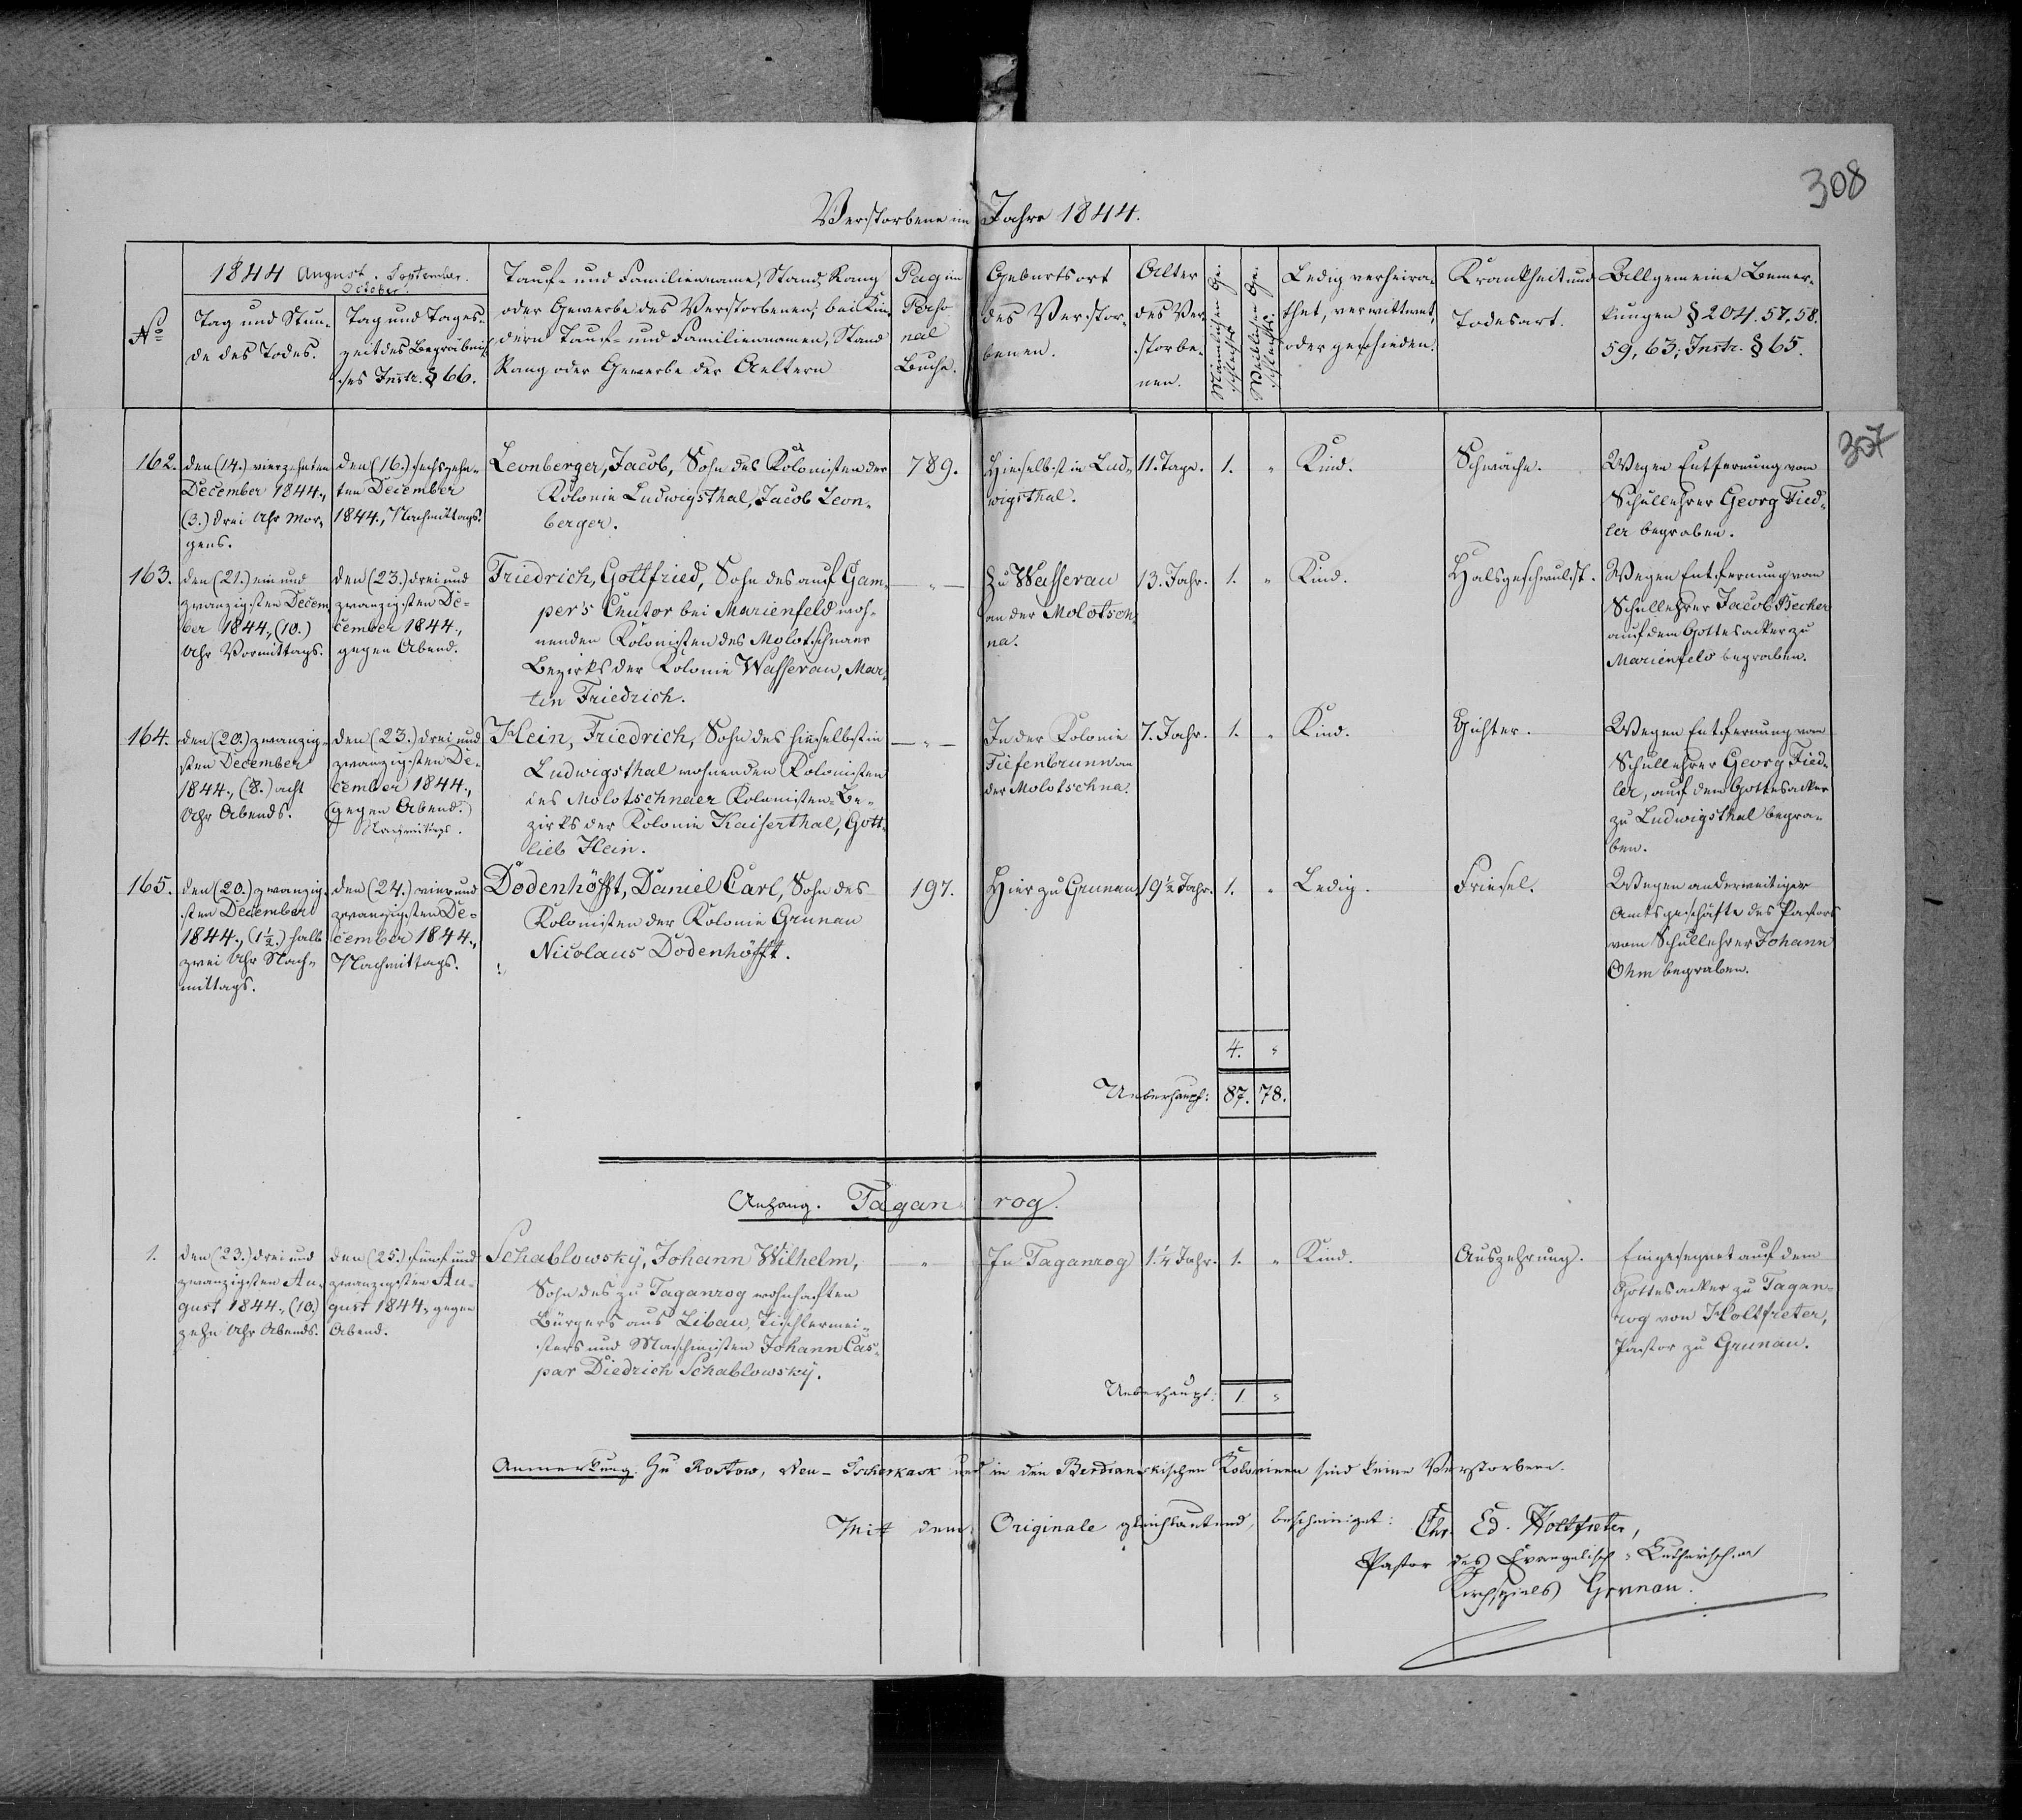 308
Verstorbene im Jahre 1844.
No
1844 August. September.
October.
Tag und Stun-
de des Todes.
Tag und Tages-
zeit des Begräbnis-
ses Instr. § 66.
Tauf- und Familienname, Stand, Rang
oder Gewerbe des Verstorbenen; bei Kin-
dern Tauf- und Familiennamen, Stand
Rang oder Gewerbe der Aeltern
Pag im
Perso
nal
Buche.
Geburtsort
des Verstor-
benen.
Alter
des Ver-
storbe-
nen.
Männlichen Ge-
schlechts
Weiblichen Ge-
schlechts.
Ledig, verheira-
thet, verwittwet,
oder geschieden.
Krankheit und
Todesart.
Allgemeine Bemer-
kungen § 204. 57, 58.
59, 63; Instr. § 65.
307
162.
den (14.) vierzehnten
December 1844.,
(3.) drei Uhr Mor-
gens.
den (16.) sechszehn-
ten December
1844., Nachmittags.
Leonberger, Jacob, Sohn des Kolonisten der
Kolonie Ludwigsthal, Jacob Leon-
berger.
789.
Hieselbst in Lud-
wigsthal.
11. Tage.
1.
"
Kind.
Schwäche.
Wegen Entfernung vom
Schullehrer Georg Fied-
ler begraben.
163.
den (21.) ein und
zwanzigsten Decem
ber 1844., (10.)
Uhr Vormittags.
den (23.) drei und
zwanzigsten De-
cember 1844.,
gegen Abend.
Friedrich, Gottfried, Sohn des auf Gam-
per's Chutor bei Marienfeld woh-
nenden Kolonisten des Molotschnaer
Bezirks der Kolonie Wasserau, Mar-
tin Friedrich.
"
Zu Wasserau
an der Molotsch-
na.
13. Jahr.
1.
"
Kind.
Halsgeschwulst.
Wegen Entfernung vom
Schullehrer Jacob Becker
auf dem Gottesacker zu
Marienfeld begraben.
164.
den (20.) zwanzig-
sten December
1844., (8.) acht
Uhr Abends.
den (23.) drei und
zwanzigsten De-
cember 1844.,
(gegen Abend.)
Nachmittags.
Hein, Friedrich, Sohn des hieselbst in
Ludwigsthal wohnenden Kolonisten
des Molotschnaer Kolonisten-Be-
zirks der Kolonie Kaiserthal, Gott-
lieb Hein.
"
In der Kolonie
Tiefenbrunn an
der Molotschna.
7. Jahr.
1.
"
Kind.
Gichter.
Wegen Entfernung vom
Schullehrer Georg Fied-
ler, auf dem Gottesacker
zu Ludwigsthal begra-
ben.
165.
den (20.) zwanzig-
sten December
1844., (1½.) halb
zwei Uhr Nach-
mittags.
den (24.) vier und
zwanzigsten De-
cember 1844.,
Nachmittags.
Dodenhöfft, Daniel Carl, Sohn des
Kolonisten der Kolonie Grunau
Nicolaus Dodenhöfft.
197.
Hier zu Grunau.
19½ Jahr.
1.
"
Ledig.
Friesel.
Wegen anderweitiger
Amtsgeschäfte des Pastors
vom Schullehrer Johann
Ohm begraben.
4. "
Ueberhaupt: 87. 78.
Anhang. Taganrog.
1.
den (23.) drei und
zwanzigsten Au-
gust 1844., (10.)
zehn Uhr Abends.
den (25.) fünf und
zwanzigsten Au-
gust 1844., gegen
Abend.
Schablowsky, Johann Wilhelm,
Sohn des zu Taganrog wohnhaften
Bürgers aus Libau, Tischlermei-
sters und Maschinisten Johann Cas-
par Diedrich Schablowsky.
"
In Taganrog
1.¼ Jahr.
1.
"
Kind.
Auszehrung.
Eingesegnet auf dem
Gottesacker zu Tagan-
rog von Holtfreter,
Pastor zu Grunau.
Ueberhaupt: 1 "
Anmerkung. Zu Rostow, Neu-Tscherkask und in den Berdianskischen Kolonieen sind keine Verstorbene.
Mit dem Originale gleichlautend, bescheiniget: Chr. Ed. Holtfreter,
Pastor des Evangelisch-Lutherischen
Kirchspiels Grunau.